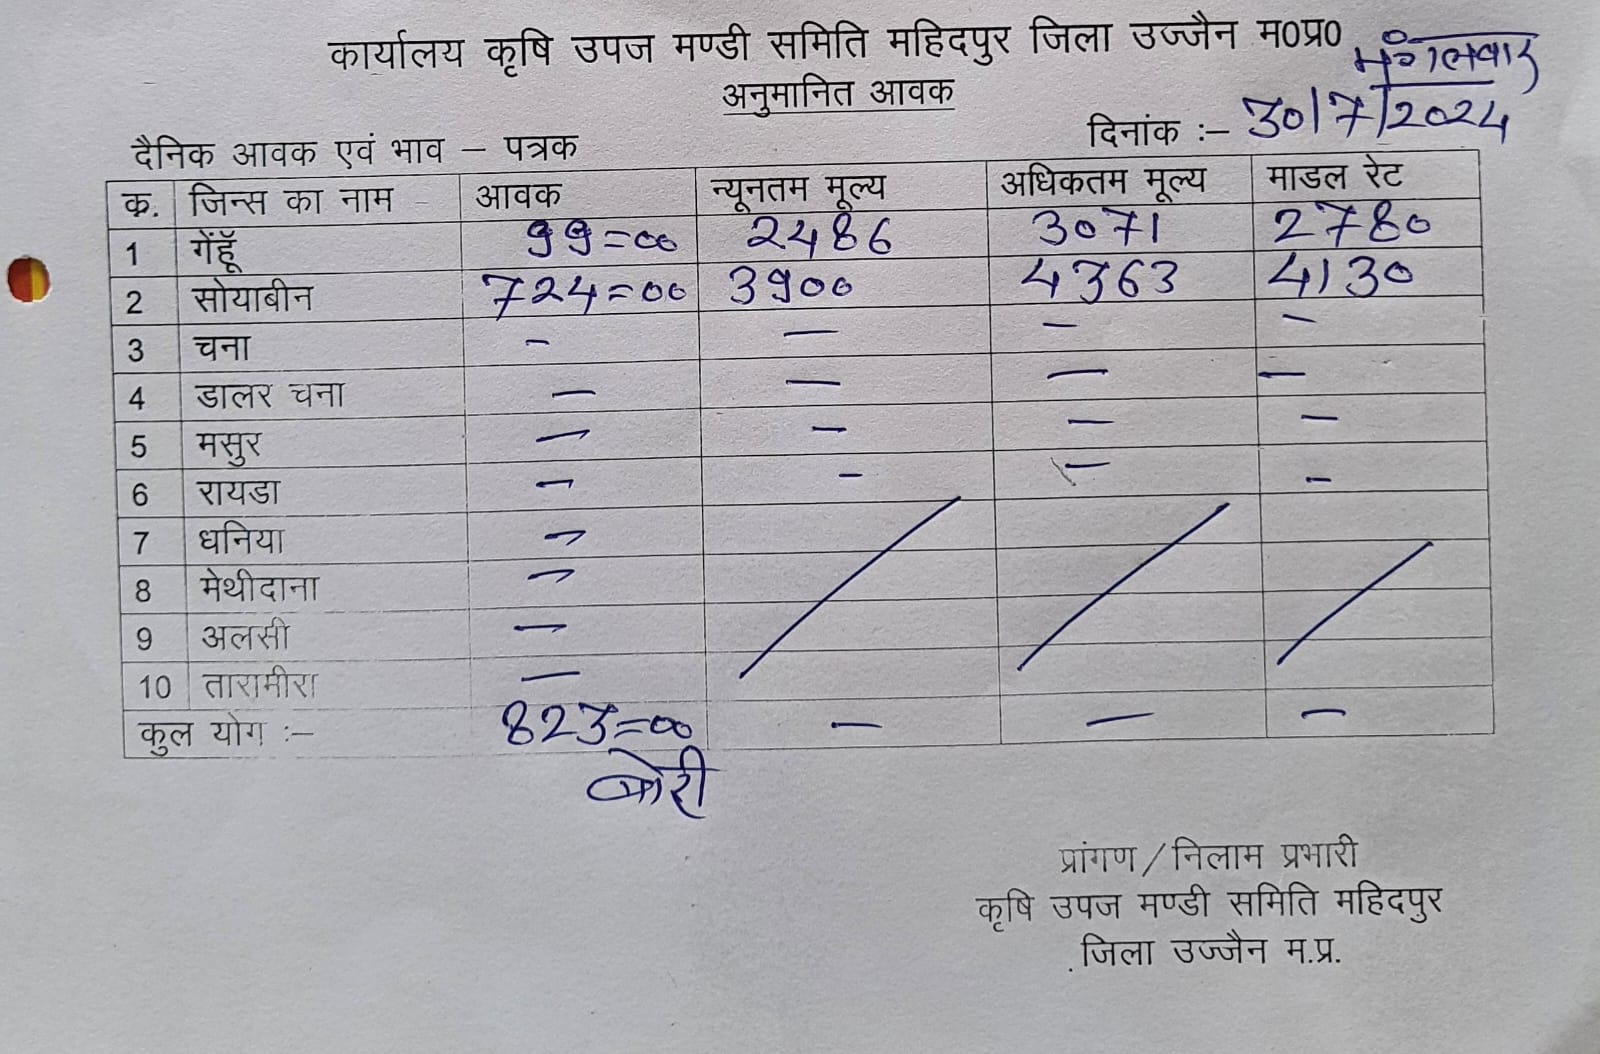 कार्यालय कृषि उपज मण्डी समिति महिदपुर जिला उज्जैन म0प्र0
मंगलवार
अनुमानित आवक
दैनिक आवक एवं भाव – पत्रक दिनांक :– 30/7/2024
क. जिन्स का नाम आवक न्यूनतम मूल्य अधिकतम मूल्य माडल रेट
1 गेंहूँ 99=00 2486 3071 2780
2 सोयाबीन 724=00 3900 4363 4130
3 चना – – – –
4 डालर चना – – – –
5 मसुर – – – –
6 रायडा – – – –
7 धनिया –
8 मेथीदाना –
9 अलसी –
10 तारामीरा –
कुल योग :– 823=00 – – –
बोरी
प्रांगण / निलाम प्रभारी
कृषि उपज मण्डी समिति महिदपुर
जिला उज्जैन म.प्र.